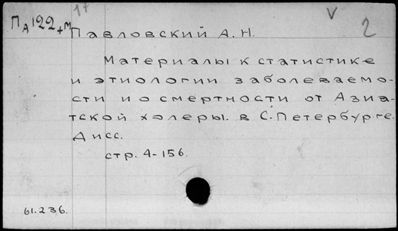 17
V
2
ПА 122+М
Павловский А. Н.
Материалы к статистике
и этиологии заболеваемо-
сти и о смертности от Азиа-
тской холеры. в С.-Петербурге.
Дисс.
стр. 4-156.
61.236.